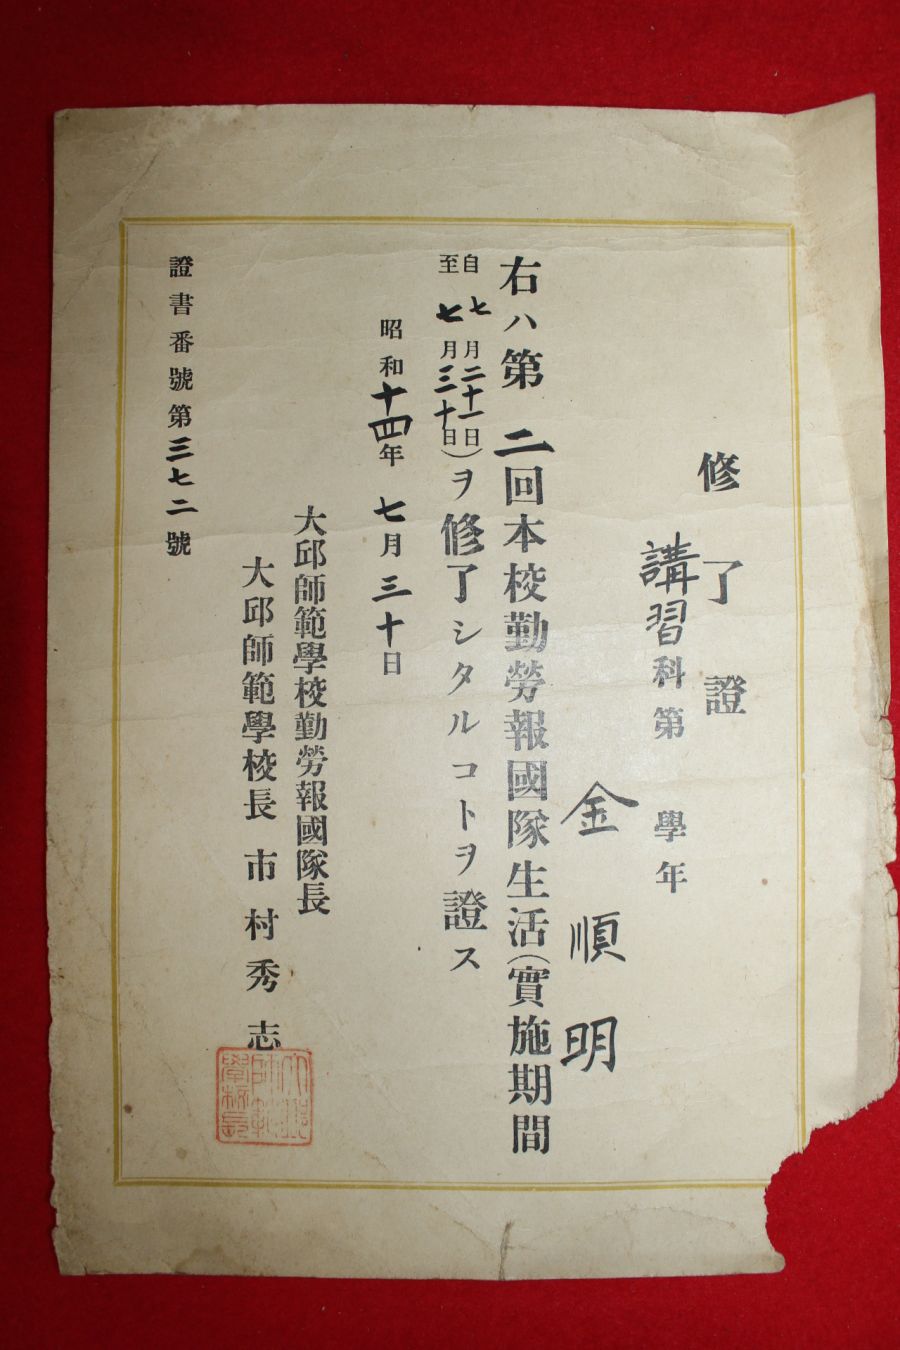 修了證
講習科第 學年
金順明
右ハ第二回本校勤勞報國隊生活(實施期間
自七月二十一日
至七月三十日)ヲ修了シタルコトヲ證ス
昭和十四年七月三十日
大邱師範學校勤勞報國隊長
大邱師範學校長 市村秀志
大邱師範學校長
證書番號第三七二號